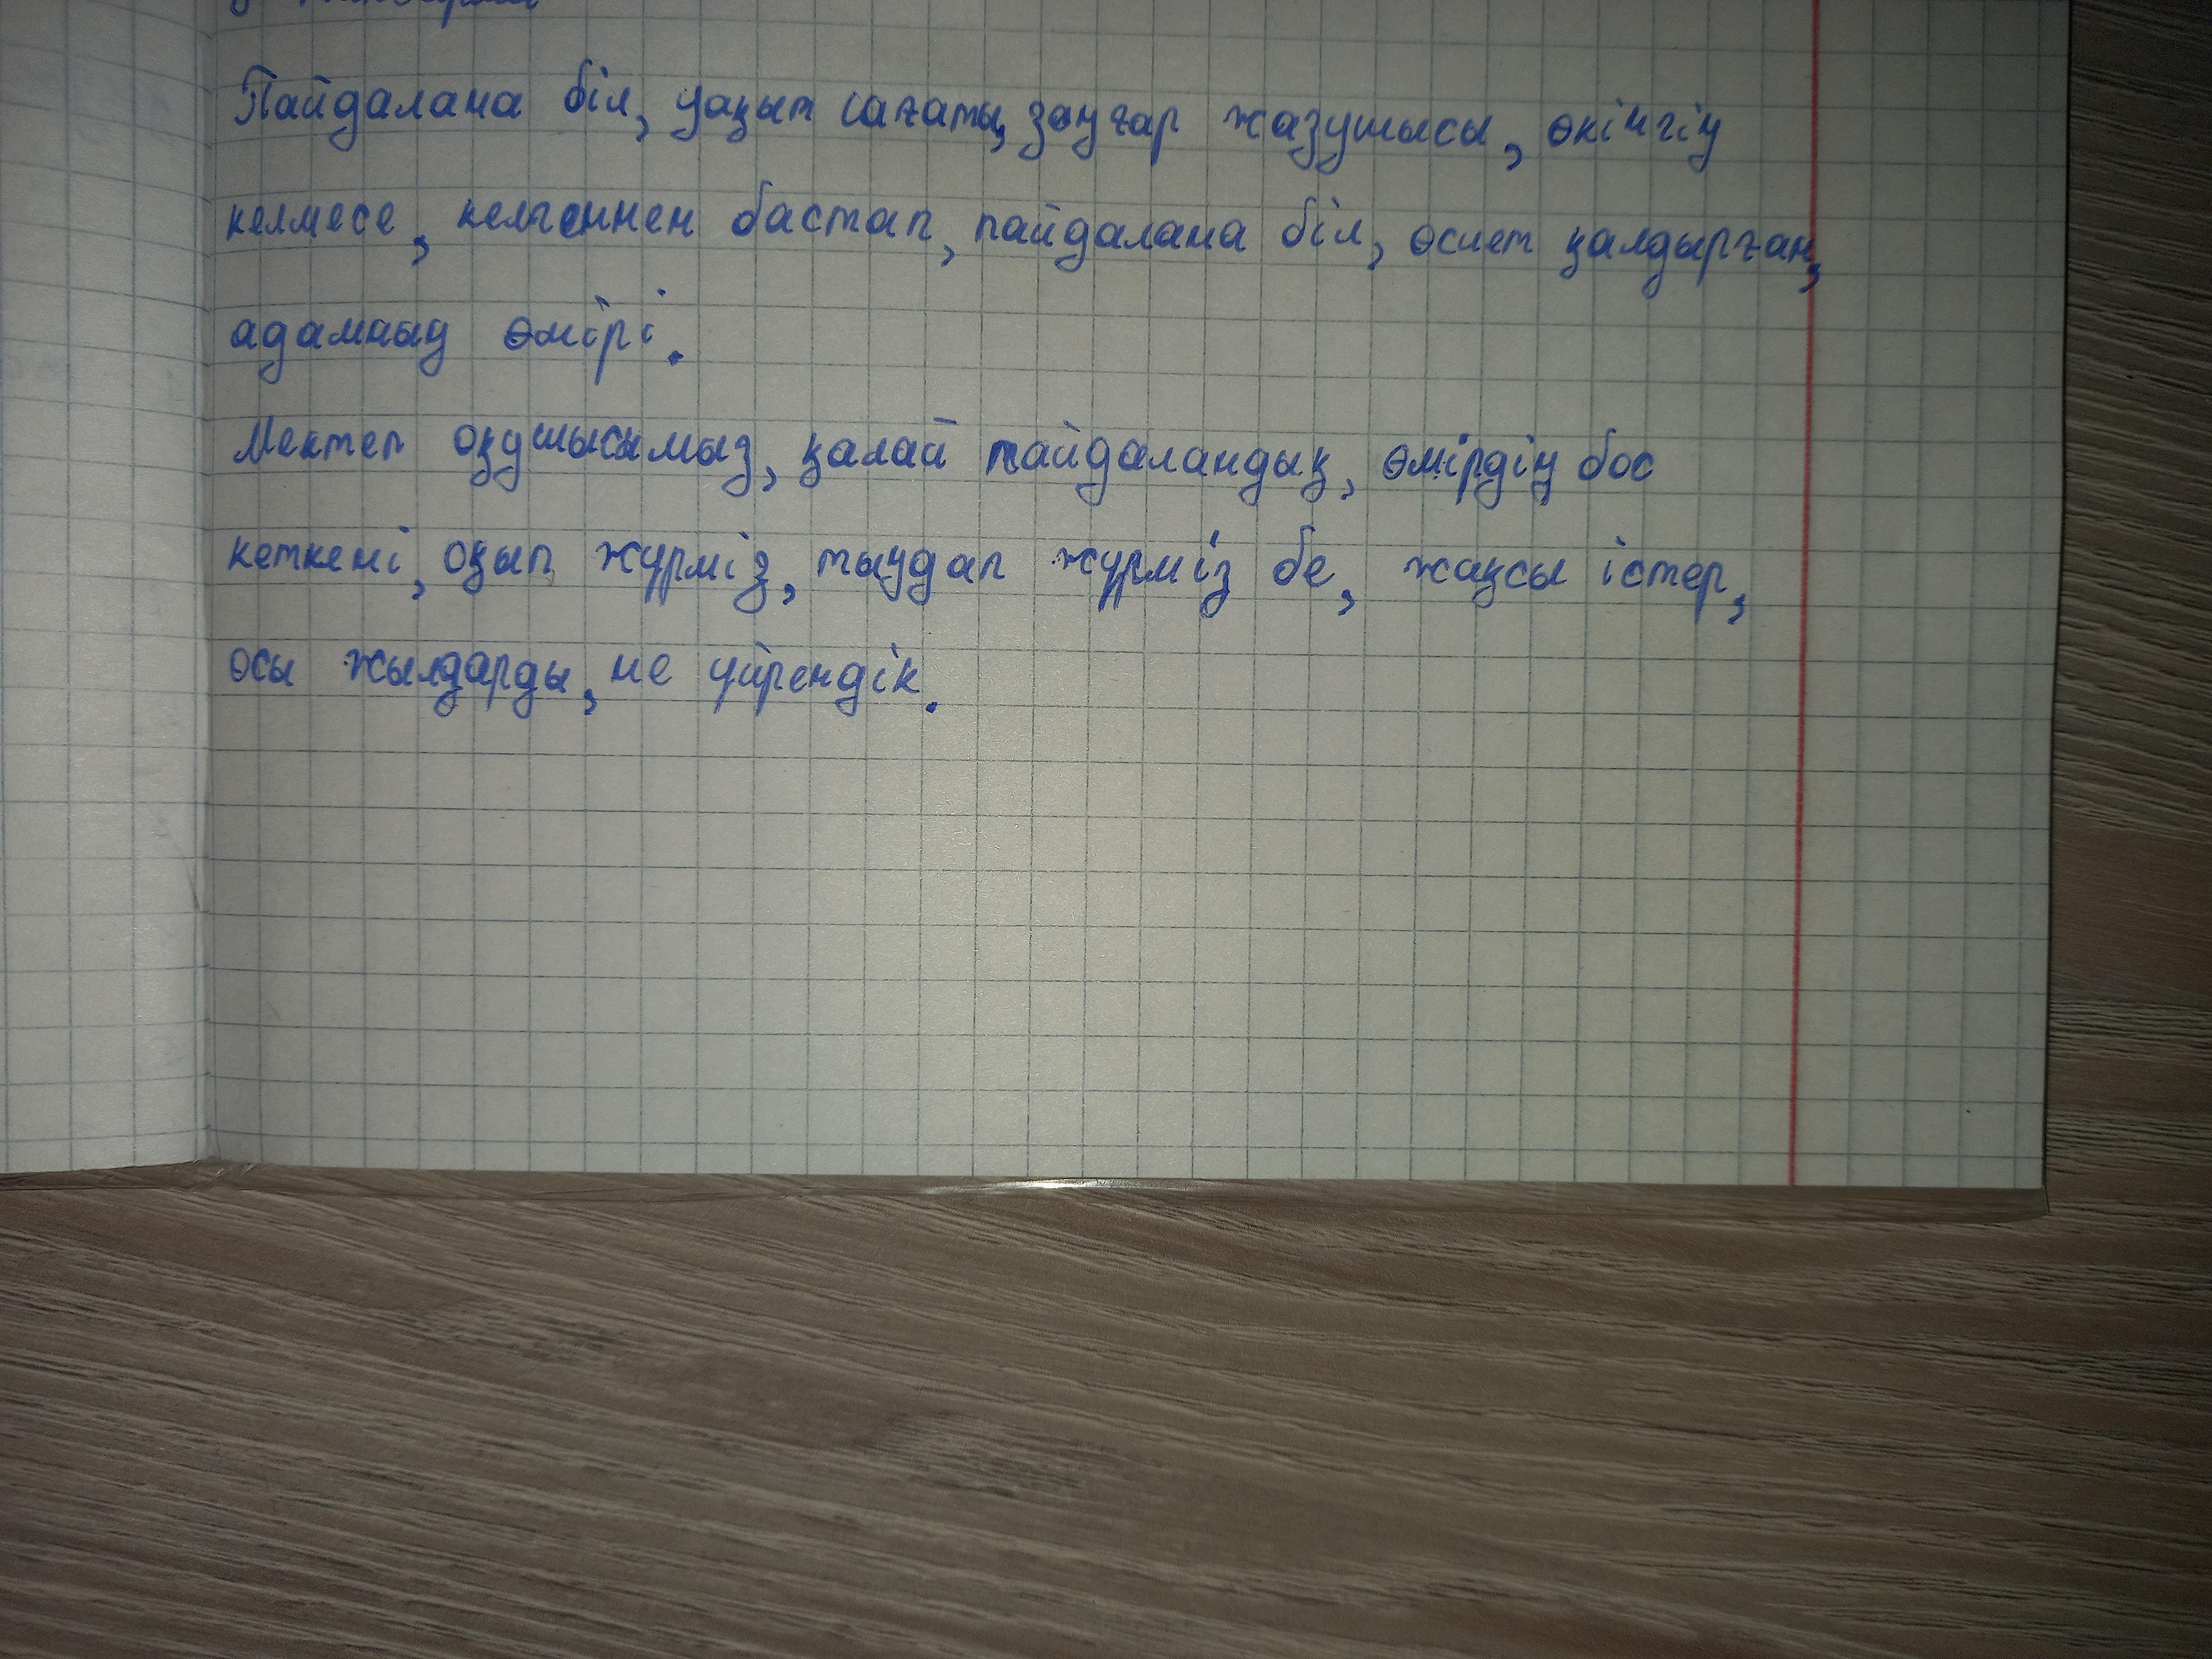 Пайдалана біл, уақыт сағаты, заңғар жазушысы, өкінгің
келмесе, келгеннен бастап, пайдалана біл, өсиет қалдырған,
адамның өмірі.
Мектеп оқушысымыз, қалай пайдаландық, өмірдің бос
кеткені, оқып жүрміз, тыңдап жүрміз бе, жақсы істер,
осы жылдарды, не үйрендік.